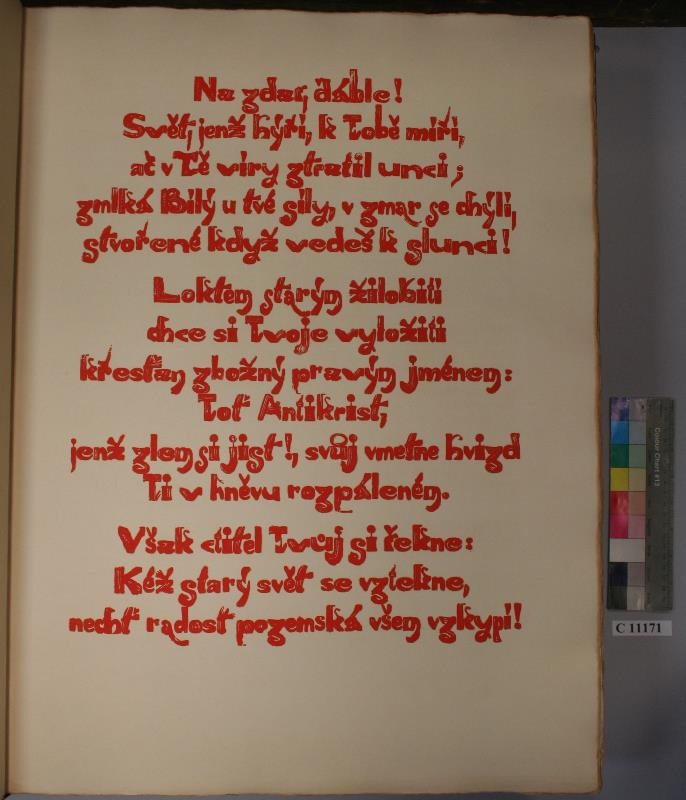 Na zdar, ďáble!
Svět, jenž hýří, k Tobě míří,
ač v Tě víry ztratil unci;
zmlká Bílý u tvé síly, v zmar se chýlí,
stvořené když vedeš k slunci!
Loktem starým žilobití
chce si Tvoje vyložiti
křesťan zbožný pravým jménem:
Toť Antikrist,
jenž zlem si jist!, svůj vmetne hvizd
Ti v hněvu rozpáleném.
Však ctitel Tvůj si řekne:
Kéž starý svět se vztekne,
nechť radost pozemská všem vzkypí!
Colour Chart #13
C 11171